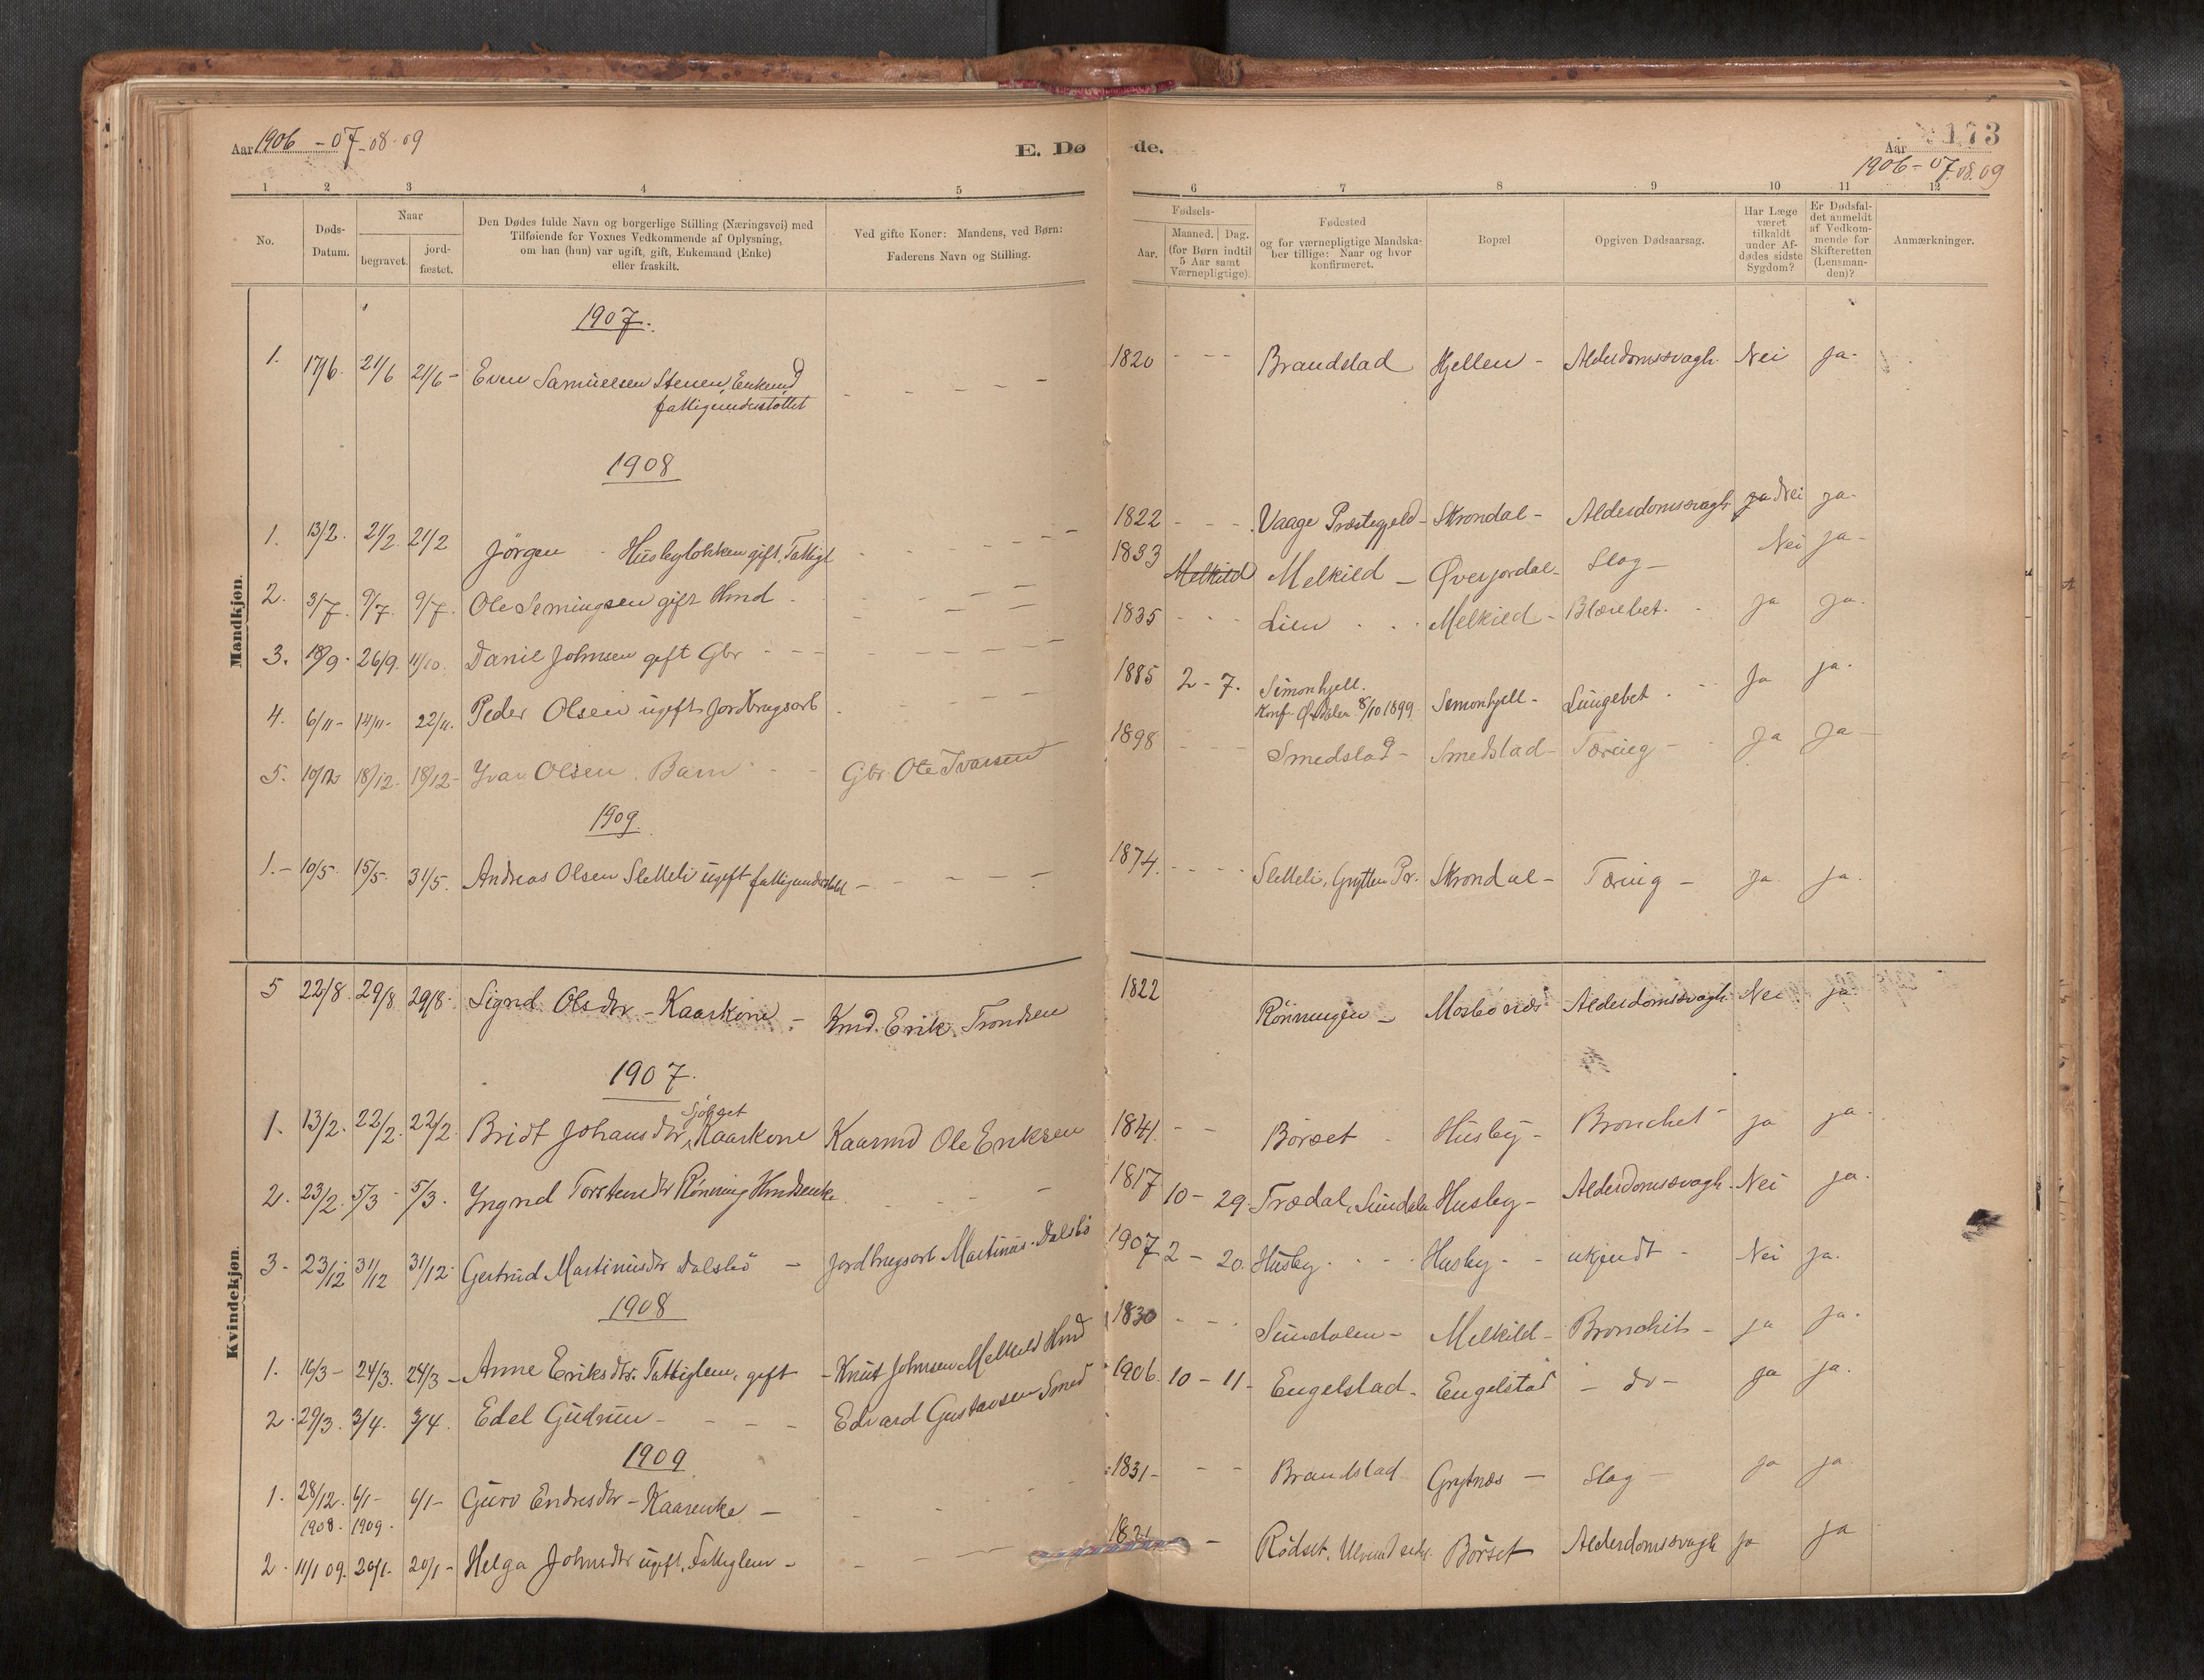 Aar 1906 - 07 - 08 - 09
E. Dø
1 2 3 4 5
No.
Døds-Datum.
Naar
begravet.
jord-fæstet.
Den Dødes fulde Navn og borgerlige Stilling (Næringsvei) med
Tilføiende for Voxnes Vedkommende af Oplysning,
om han (hun) var ugift, gift, Enkemand (Enke)
eller fraskilt.
Ved gifte Koner: Mandens, ved Børn:
Faderens Navn og Stilling.
Mandkjøn.
1907.
1. 17/6. 21/6 21/6 - Even Samuelsen Stenen, Enkemd
fattigunderstøttet
1908
1. 13/2. 21/2. 21/2 Jørgen - Husbyløkken gift, Fattigl
2. 3/7. 9/7. 9/7. Ole Semingsen gift Hmd
3. 18/9 - 26/9. 11/10. Daniel Johnsen gift Gbr - - -
4. 6/11 - 14/11 - 22/11. Peder Olsen ugift Jordbrugsarb
5. 10/12 18/12 - 18/12 - Ivar Olsen. Barn - - Gbr. Ole Ivarsen
1909.
1. - 10/5. 15/5. 31/5. Andreas Olsen Sletteli ugift fattigunderstøtt
Kvindekjøn.
5 22/8. 29/8. 29/8. Sigrid Olsdtr - Kaarkone - Kmd. Erik Trondsen
1907.
Sjølset
1. 13/2. 22/2. 22/2. Bridt Johansdtr, Kaarkone Kaarmd Ole Eriksen
2. 23/2. 5/3 - 5/3. Ingrid Torstensdtr Rønning Hmdsenke
3 - 23/12 31/12 31/12. Gertrud Martinusdtr Dalsbø - Jordbrugsarb Martinus Dalsbø
1908
1. 16/3 - 24/3. 24/3 - Anne Eriksdtr. Fattiglem, gift - Knut Johnsen Melkild Hmd
2. 29/3. 3/4. 3/4. Edel Gudrun - - - - Edvard Gustavsen Smed
1909
1. 28/12. 6/1 - 6/1 - Guro Endresdtr - Kaarenke -
1908. 1909.
2. 11/1 09. 20/1. 20/1 - Helga Johnsdtr ugift, Fattiglem -
de.
173
Aar
1906 - 07. 08. 09
6 7 8 9 10 11 12
Fødsels-
Aar.
Maaned. Dag.
(for Børn indtil
5 Aar samt
Værnepligtige).
Fødested
og for værnepligtige Mandska-
ber tillige: Naar og hvor
konfirmeret.
Bopæl
Opgiven Dødsaarsag.
Har Læge
været
tilkaldt
under Af-
dødes sidste
Sygdom?
Er Dødsfal-
det anmeldt
af Vedkom-
mende for
Skifteretten
(Lensman-
den)?
Anmærkninger.
1820 - - - Brandstad Hjellen - Alderdomssvagh. Nei ja -
1822 - - - Vaage Præstegjeld - Skrondal - Alderdomssvagh. ja Nei ja -
1833 Melkild Melkild - Øverjordal - Slag - Nei ja -
1835 - - - Lien - - Melkild - Blærebet. - ja ja -
1885 2 - 7. Simonhjell. Simonhjell - Lungebet - ja ja -
Konf. Øxdalen 8/10 1899
1898 - - - Smedstad - Smedstad - Tæring - ja ja -
1874. - - - Sletteli, Grytten Pr. Skrondal - Tæring - ja ja.
1822 Rønningen - Mosbønæs Alderdomssvagh. Nei ja.
1841. - - Børset - Husby - Bronchet - ja ja -
1817 10 - 29. Trædal, Sundalen Husby - Alderdomssvagh. Nei ja.
1907 2 - 20. Husby - - - Husby - - ukjendt - Nei ja.
1830 - - Sundalen - Melkild - Bronchit - ja ja.
1906. 10 - 11 - Engelstad - Engelstad - do - ja ja.
1831 - - - Brandstad Grytnæs - Slag - ja ja
1821 - Rødset, Ulvund Alderdomssvagh ja ja
Børset